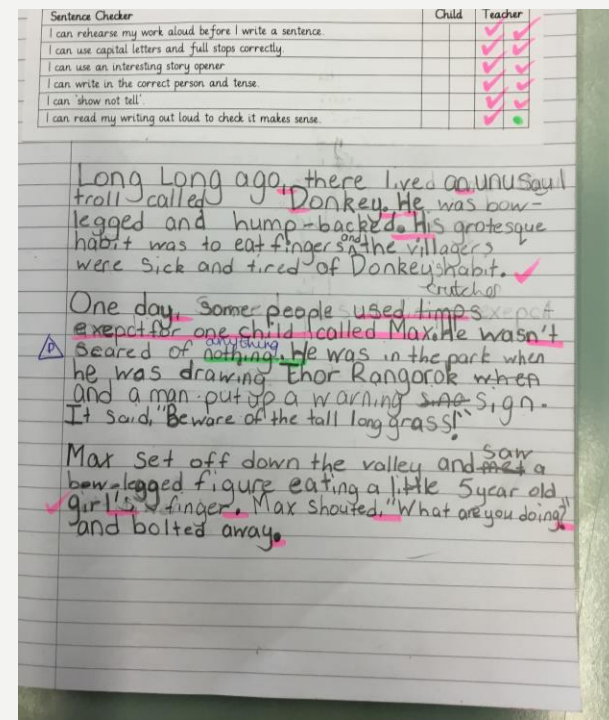 Sentence Checker Child Teacher
I can rehearse my work aloud before I write a sentence.
I can use capital letters and full stops correctly.
I can use an interesting story opener
I can write in the correct person and tense.
I can 'show not tell'.
I can read my writing out loud to check it makes sense.
Long Long ago, there lived an unusaul
troll called Donkey. He was bow-
legged and hump-backed. His grotesque
habit was to eat fingers and the villagers
were sick and tired of Donkey's habit.
crutches
One day, some people used
exepct for one child called Max. He wasn't
anything
scared of nothing. He was in the park when
he was drawing Thor Rangorok when
and a man put up a warning sine sign.
It said, "Beware of the tall long grass!"
saw
Max set off down the valley and met a
bow-legged figure eating a little 5 year old
girl's finger. Max shouted, "What are you doing?"
and bolted away.